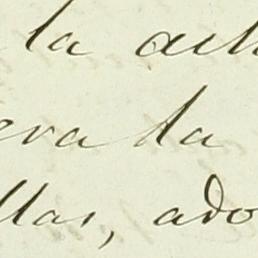 la
era la
llas, ado